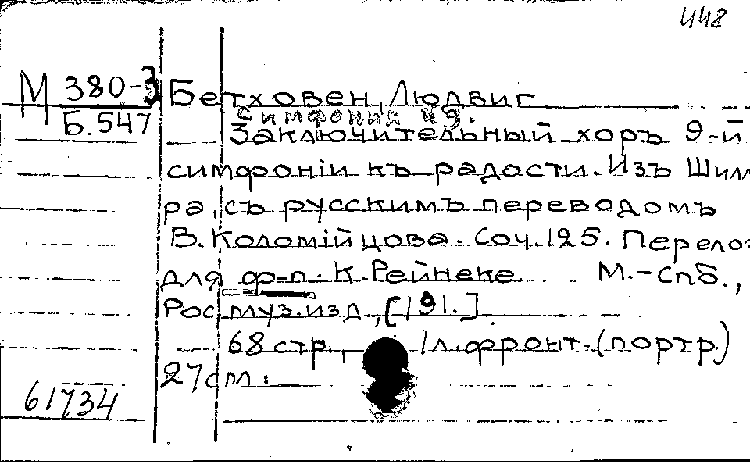 448
М 380-3
Б.547
Бетховен, Людвиг
Симфония №9.
Заключительный хоръ 9-й
симфоніи къ радости. Изъ Шил
ра, съ русскимъ переводомъ
В. Коломійцова. Соч. 125. Перело
для ф-п. К. Рейнеке. М.-Спб.,
Рос. муз. изд., [191.].
68 стр., 1 л. фронт. (портр.)
27 см.
61734